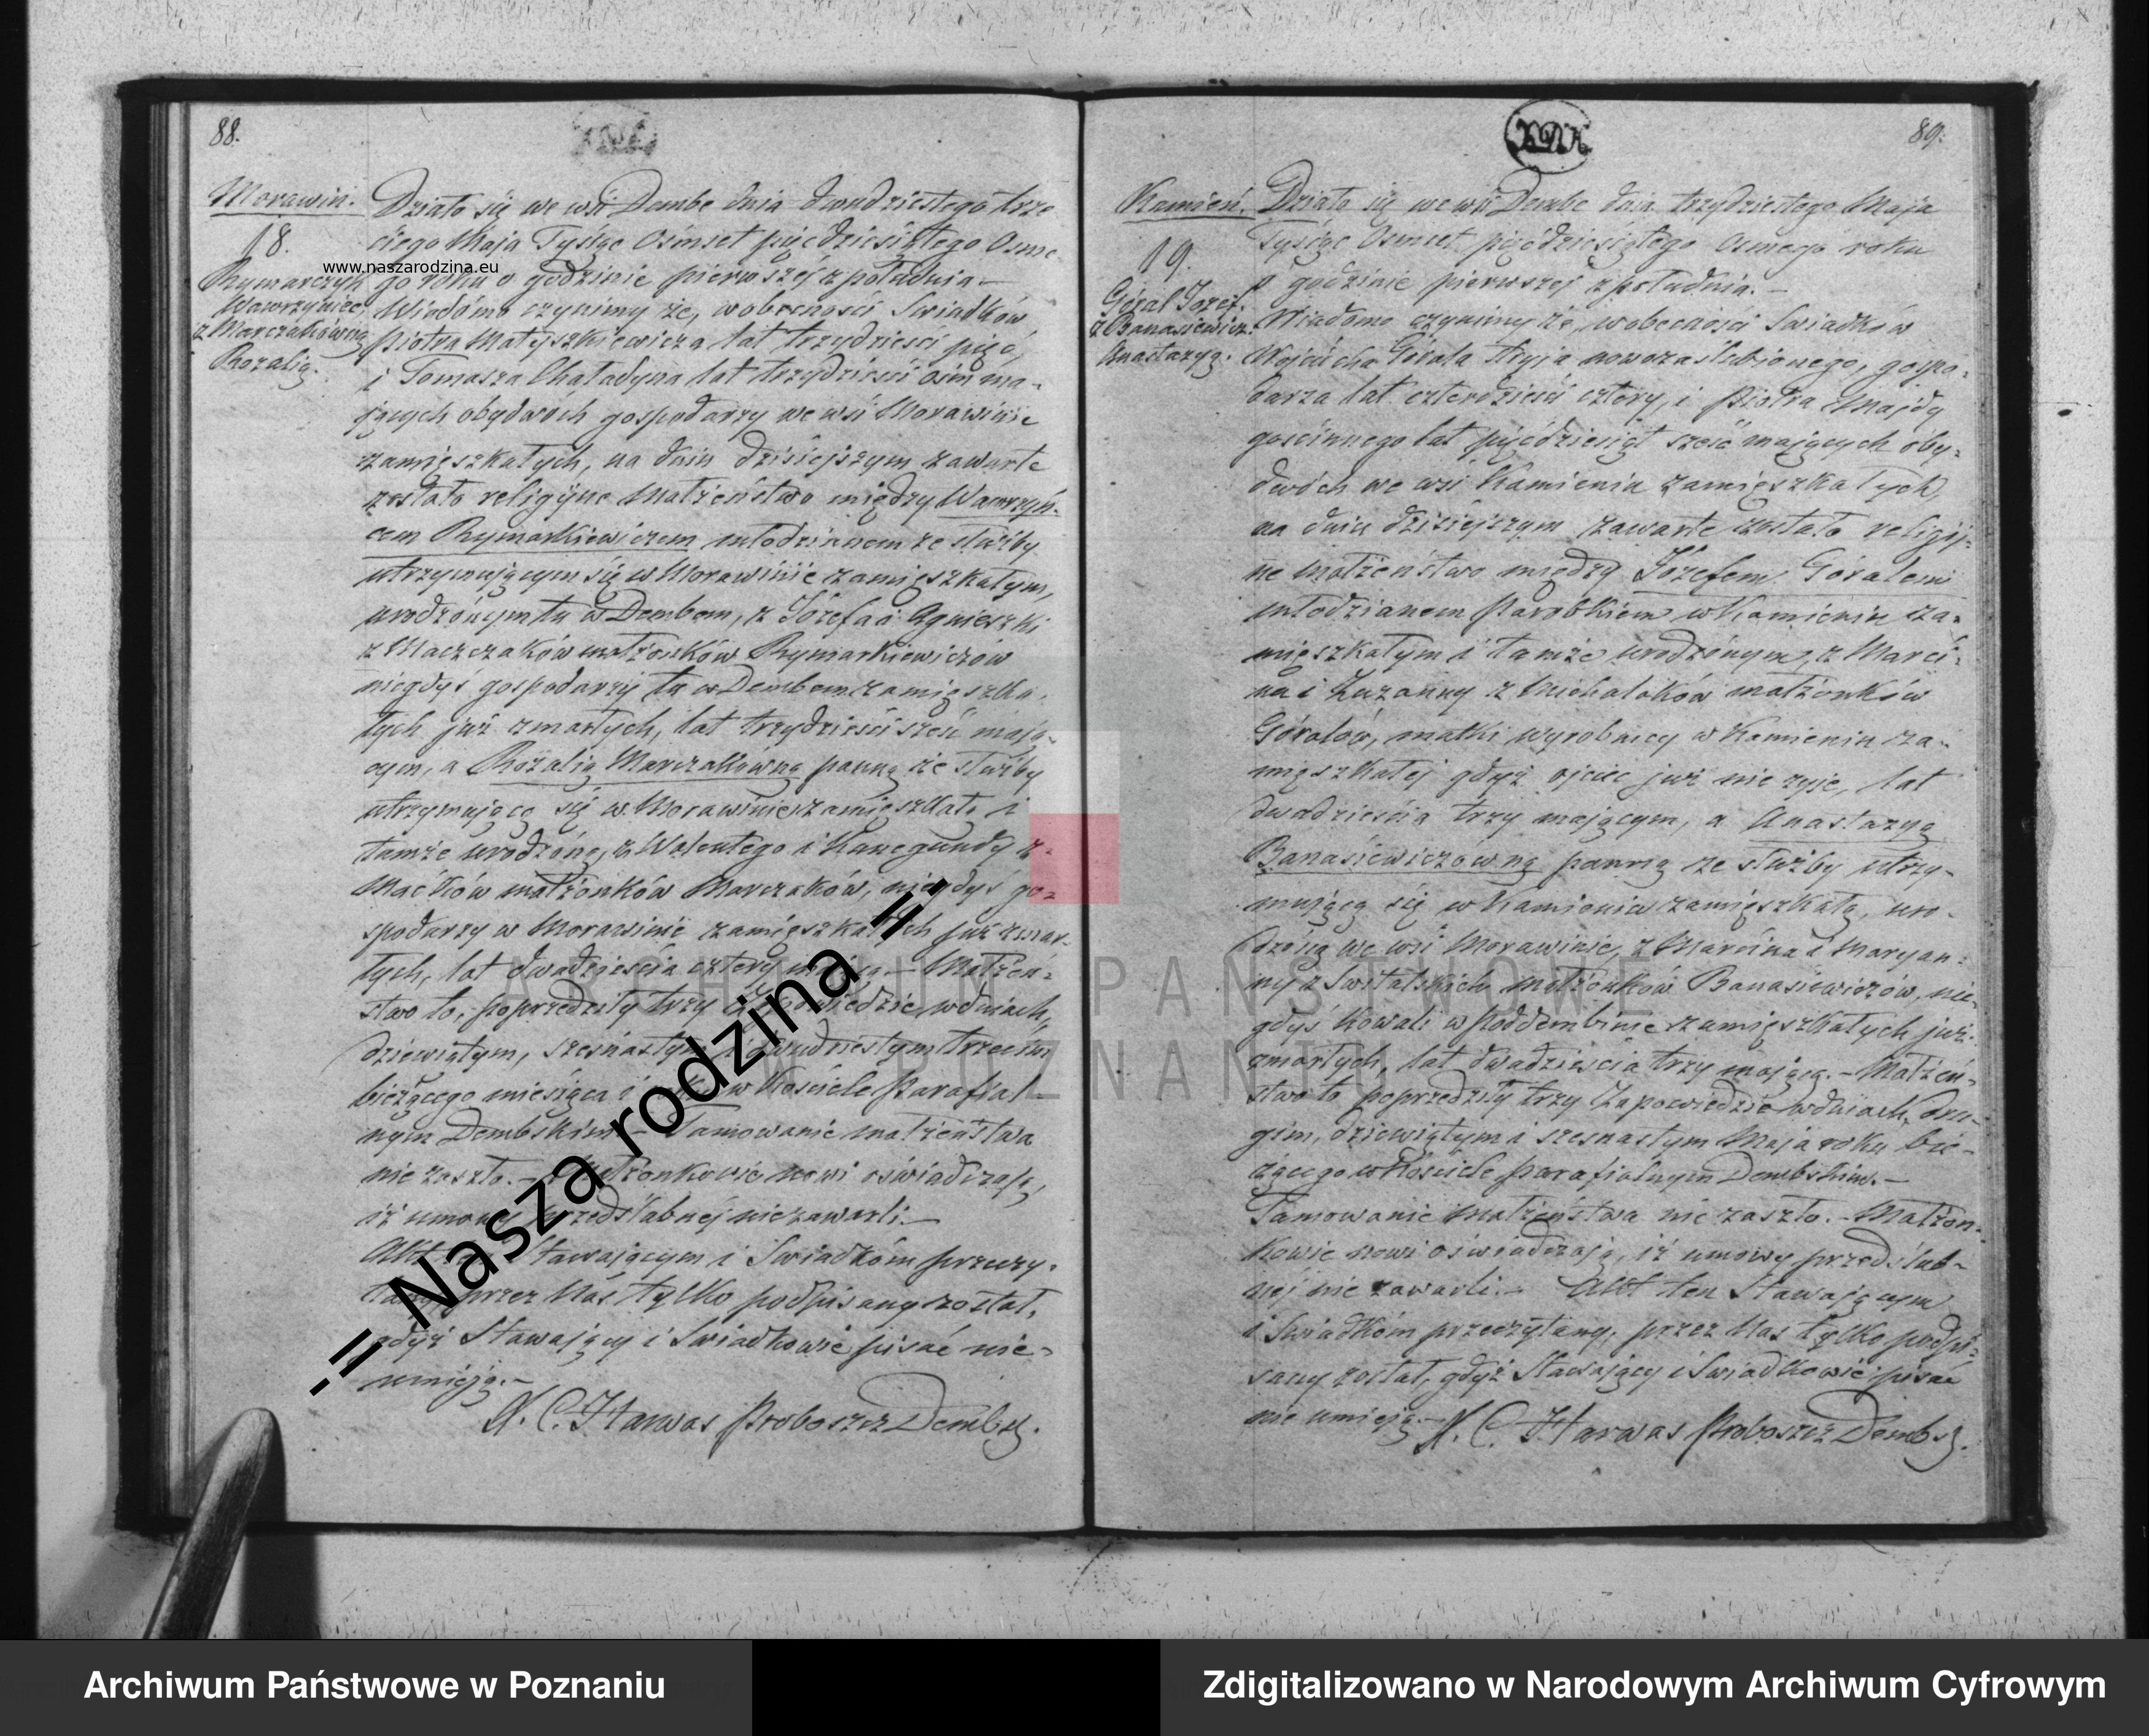 88.
Morawin.
18.
Rymarczyk
Wawrzyniec,
z Marczaków̄ną
Rozalią.
Działo się we wsi Dembe dnia dwudziestego trze
ciego Maja Tysiąc Ośmset pięćdziesiątego Osme
go roku o godzinie pierwszéj z południa –
Wiadomo czynimy że, w obecności Swiadków
Piotra Matyszkiewicza lat trzydzieści pięć,
i Tomasza Chaładyna lat trzydzieści ośm ma-
jących obydwóch gospodarzy we wsi Morawinie
zamięszkałych, na dniu dzisiejszym zawarte
zostało religijne Małżeństwo między Wawrzyń-
cem Rymarkiewiczem młodzianem ze służby
utrzymującym się w Morawinie zamięszkałym,
urodzonym tu w Dembem, z Józefa i Agnieszki
z Maczaków małżonków Rymarkiewiczów
niegdyś gospodarzy tu w Dembem zamięszka-
łych już zmarłych, lat trzydzieści sześć mają-
cym, a Rozalią Marczakówną panną ze służby
utrzymującą się w Morawinie zamięszkałą i
tamże urodzoną, z Walentego i Kunegundy z
Maćków małżonków Marczaków, niegdyś go-
spodarzy w Morawinie zamięszkałych już zmar-
łych, lat dwadzieścia cztery mającą – Małżeń-
stwo to, poprzedziły trzy Zapowiedzie w dniach,
dziewiątym, szesnastym i dwudziestym trzecim
bieżącego miesiąca i roku w Kościele Parafial-
nym Dembskim. – Tamowanie małżeństwa
nie zaszło. – Małżonkowie nowi oświadczają,
iż umowy przedślubnéj nie zawarli. –
Akt ten Stawającym i Swiadkóm przeczy-
tany, przez Nas tylko podpisany został,
gdyż Stawający i Swiadkowie pisać nie-
umieją. –
X. C. Harwas Proboszcz Dembsz.
www.naszarodzina.eu
-= Nasza rodzina =-
89.
Kamień.
19.
Góral Józef.
z Banasiewicz.
Anastazyą.
Działo się we wsi Dembe dnia trzydziestego Maja
Tysiąc Ośmset pięćdziesiątego Osmego roku
o godzinie pierwszej z południa. –
Wiadomo czynimy że, w obecności Swiadków
Wojciecha Górala Stryja nowozaślubionego, gospo-
darza lat czterdzieści cztery, i Piotra Majdy
gościnnego lat pięćdziesiąt sześć mających oby-
dwóch we wsi Kamieniu zamięszkałych,
na dniu dzisiejszym zawarte zostało religij-
ne Małżeństwo między Józefem Góralem
młodzianem Parobkiem w Kamieniu za-
mięszkałym i tamże urodzonym, z Marci-
na i Zuzanny z Michalaków małżonków
Góralów, matki wyrobnicy w Kamieniu za-
mięszkałéj gdyż ojciec już nie żyje, lat
dwadzieścia trzy mającym, a Anastazyą
Banasiewiczówną panną ze służby utrzy-
mującą się w Kamieniu zamięszkałą, uro-
dzoną we wsi Morawinie, z Marcina i Maryan-
ny z Switalskich małżonków Banasiewiczów, nie-
gdyś kowali w Poddembinie zamięszkałych już
zmarłych, lat dwadzieścia trzy mającą. – Małżeń-
stwo to poprzedziły trzy Zapowiedzie w dniach, dru-
gim, dziewiątym i szesnastym Maja roku bie-
żącego w Kościele parafialnym Dembskim. –
Tamowanie Małżeństwa nie zaszło. – Małżon-
kowie nowi oświadczają, iż umowy przedślub-
néj nie zawarli. – Akt ten Stawającym
i Swiadkóm przeczytany, przez Nas tylko podpi-
sany został, gdyż Stawający i Swiadkowie pisać
nie umieją. –
X. C. Harwas Proboszcz Dembsz.
ARCHIWUM PAŃSTWOWE
W POZNANIU
Archiwum Państwowe w Poznaniu
Zdigitalizowano w Narodowym Archiwum Cyfrowym